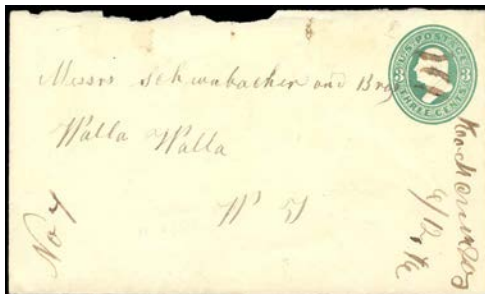 U.S. POSTAGE
3 3
THREE CENTS
Messrs Schwabacher and Bros
Walla Walla
W T
No 7